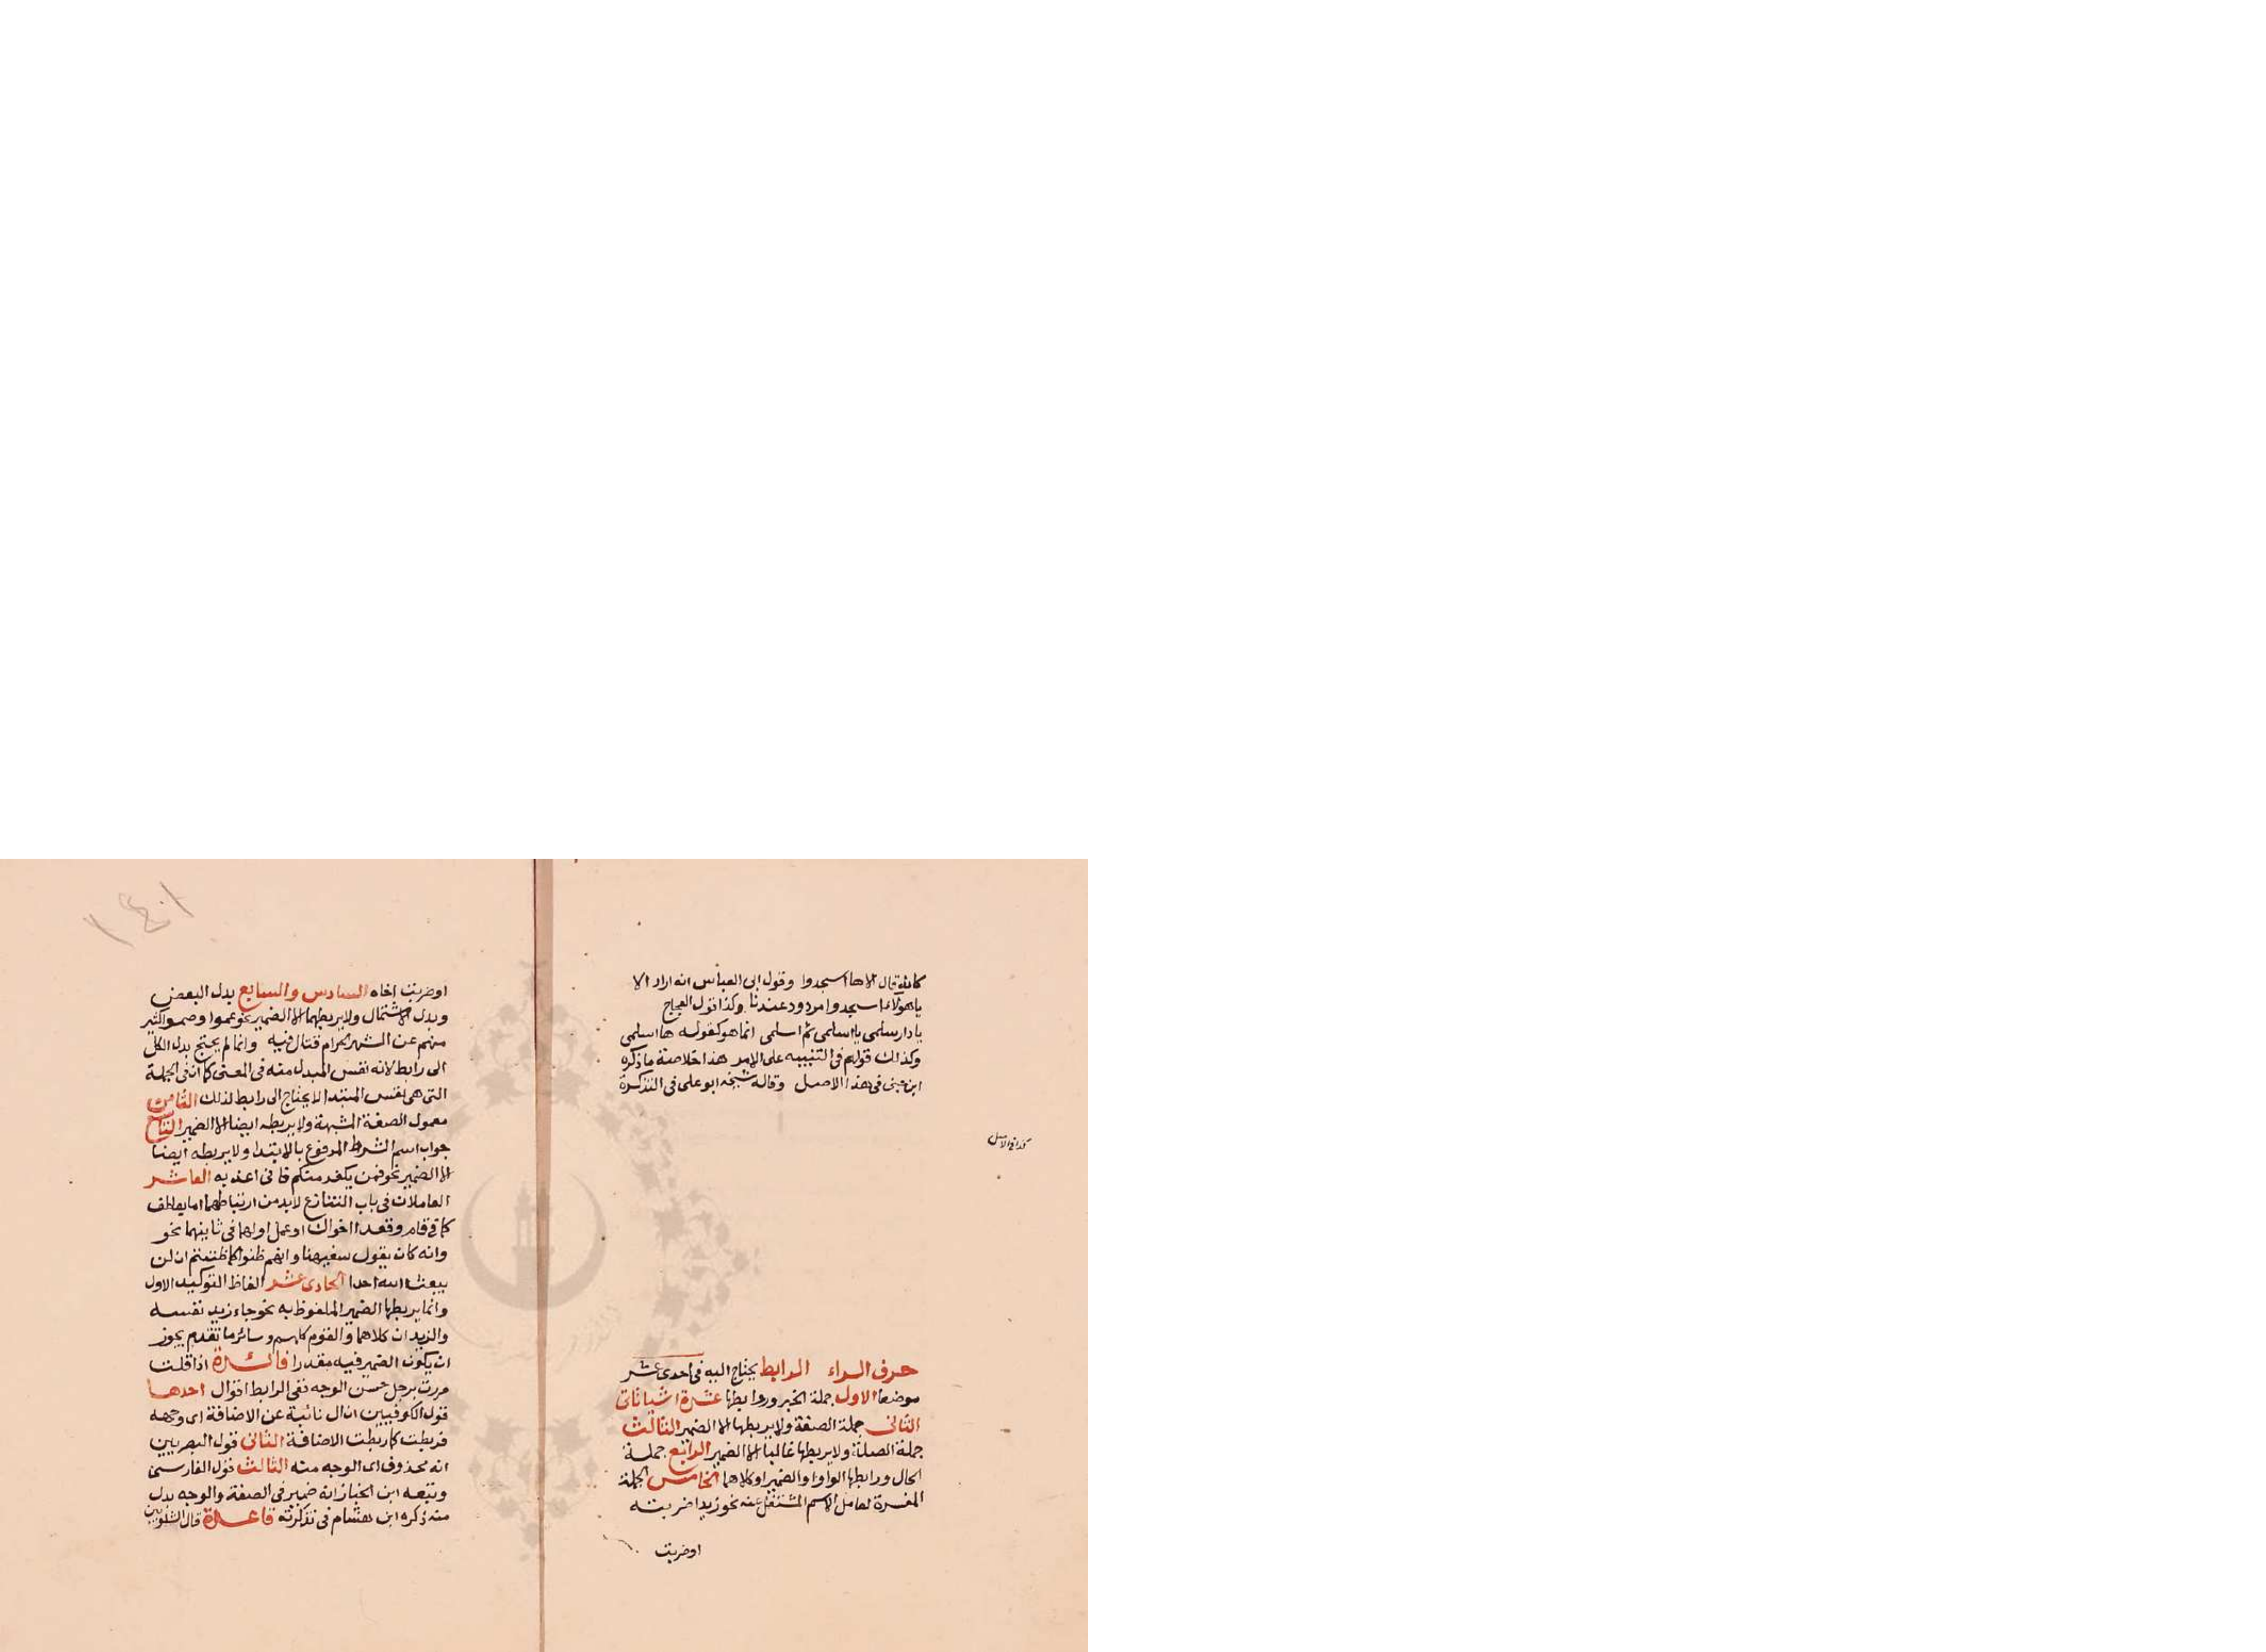 كانه قال الا ها اسجدوا وقول ابى العباس انه اراد الا
يا هولاء اسجدوا مردود عندنا وكذا قول العجاج
يا دار سلمى يا اسلمى ثم اسلمى انما هو كقوله ها اسلمى
وكذلك قولهم فى التنبيه على الامر هذا خلاصة ما ذكره
ابن جنى فى هذا الاصل وقاله شيخه ابو على فى التذكرة
كذا فى الاصل
حرف الراء الرابط يحتاج اليه فى احدى عشر
موضعا الاول جملة الخبر وروابطها عشرة
الثانى جملة الصفة ولا يربطها الا الضمير الثالث
جملة الصلة ولا يربطها غالبا الا الضمير الرابع جملة
الحال ورابطها الواو او الضمير او كلاهما الخامس الجملة
المفسرة لعامل الاسم المشتغل عنه نحو زيدا ضربته
اوضربت
اوضربت اخاه السادس والسابع بدل البعض
وبدل الاشتمال ولا يربطهما الا الضمير نحو عموا وصموا كثير
منهم عن الشهر الحرام قتال فيه وانما لم يحتج بدل الكل
الى رابط لانه نفس المبدل منه فى المعنى كما ان فى الجملة
التى هى نفس المبتدا لا يحتاج الى رابط لذلك الثامن
معمول الصفة المشبهة ولا يربطه ايضا الا الضمير التاسع
جواب اسم الشرط المرفوع بالابتدا ولا يربطه ايضا
الا الضمير نحو فمن يكفر منكم فانى اعذبه العاشر
العاملان فى باب التنازع لابد من ارتباطهما اما بعاطف
كما فى قام وقعد اخواك او عمل اولهما فى ثانيهما نحو
وانه كان يقول سفيهنا وانهم ظنوا كما ظننتم ان لن
يبعث الله احدا الحادى عشر الفاظ التوكيد الاول
وانما يربطها الضمير الملفوظ به نحو جاء زيد نفسه
والزيدان كلاهما والقوم كلهم وسائر ما تقدم يجوز
ان يكون الضمير فيه مقدرا فائدة اذا قلت
مررت برجل حسن الوجه ففى الرابط اقوال احدها
قول الكوفيين ان ال نائبة عن الاضافة اى وجهه
فربطت كما ربطت الاضافة الثانى قول البصريين
انه محذوف اى الوجه منه الثالث قول الفارسى
وتبعه ابن الخباز انه ضمير فى الصفة والوجه بدل
منه ذكره ابن هشام فى تذكرته قاعدة قال الشلوبين